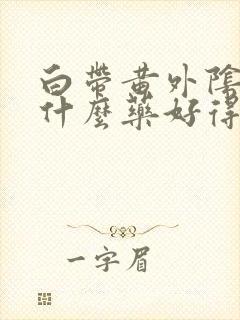 白帶黃外陰
什麼藥好得
一字眉